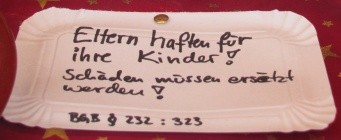 Eltern haften für
ihre Kinder!
Schäden müssen ersetzt
werden!
BGB § 232 : 323